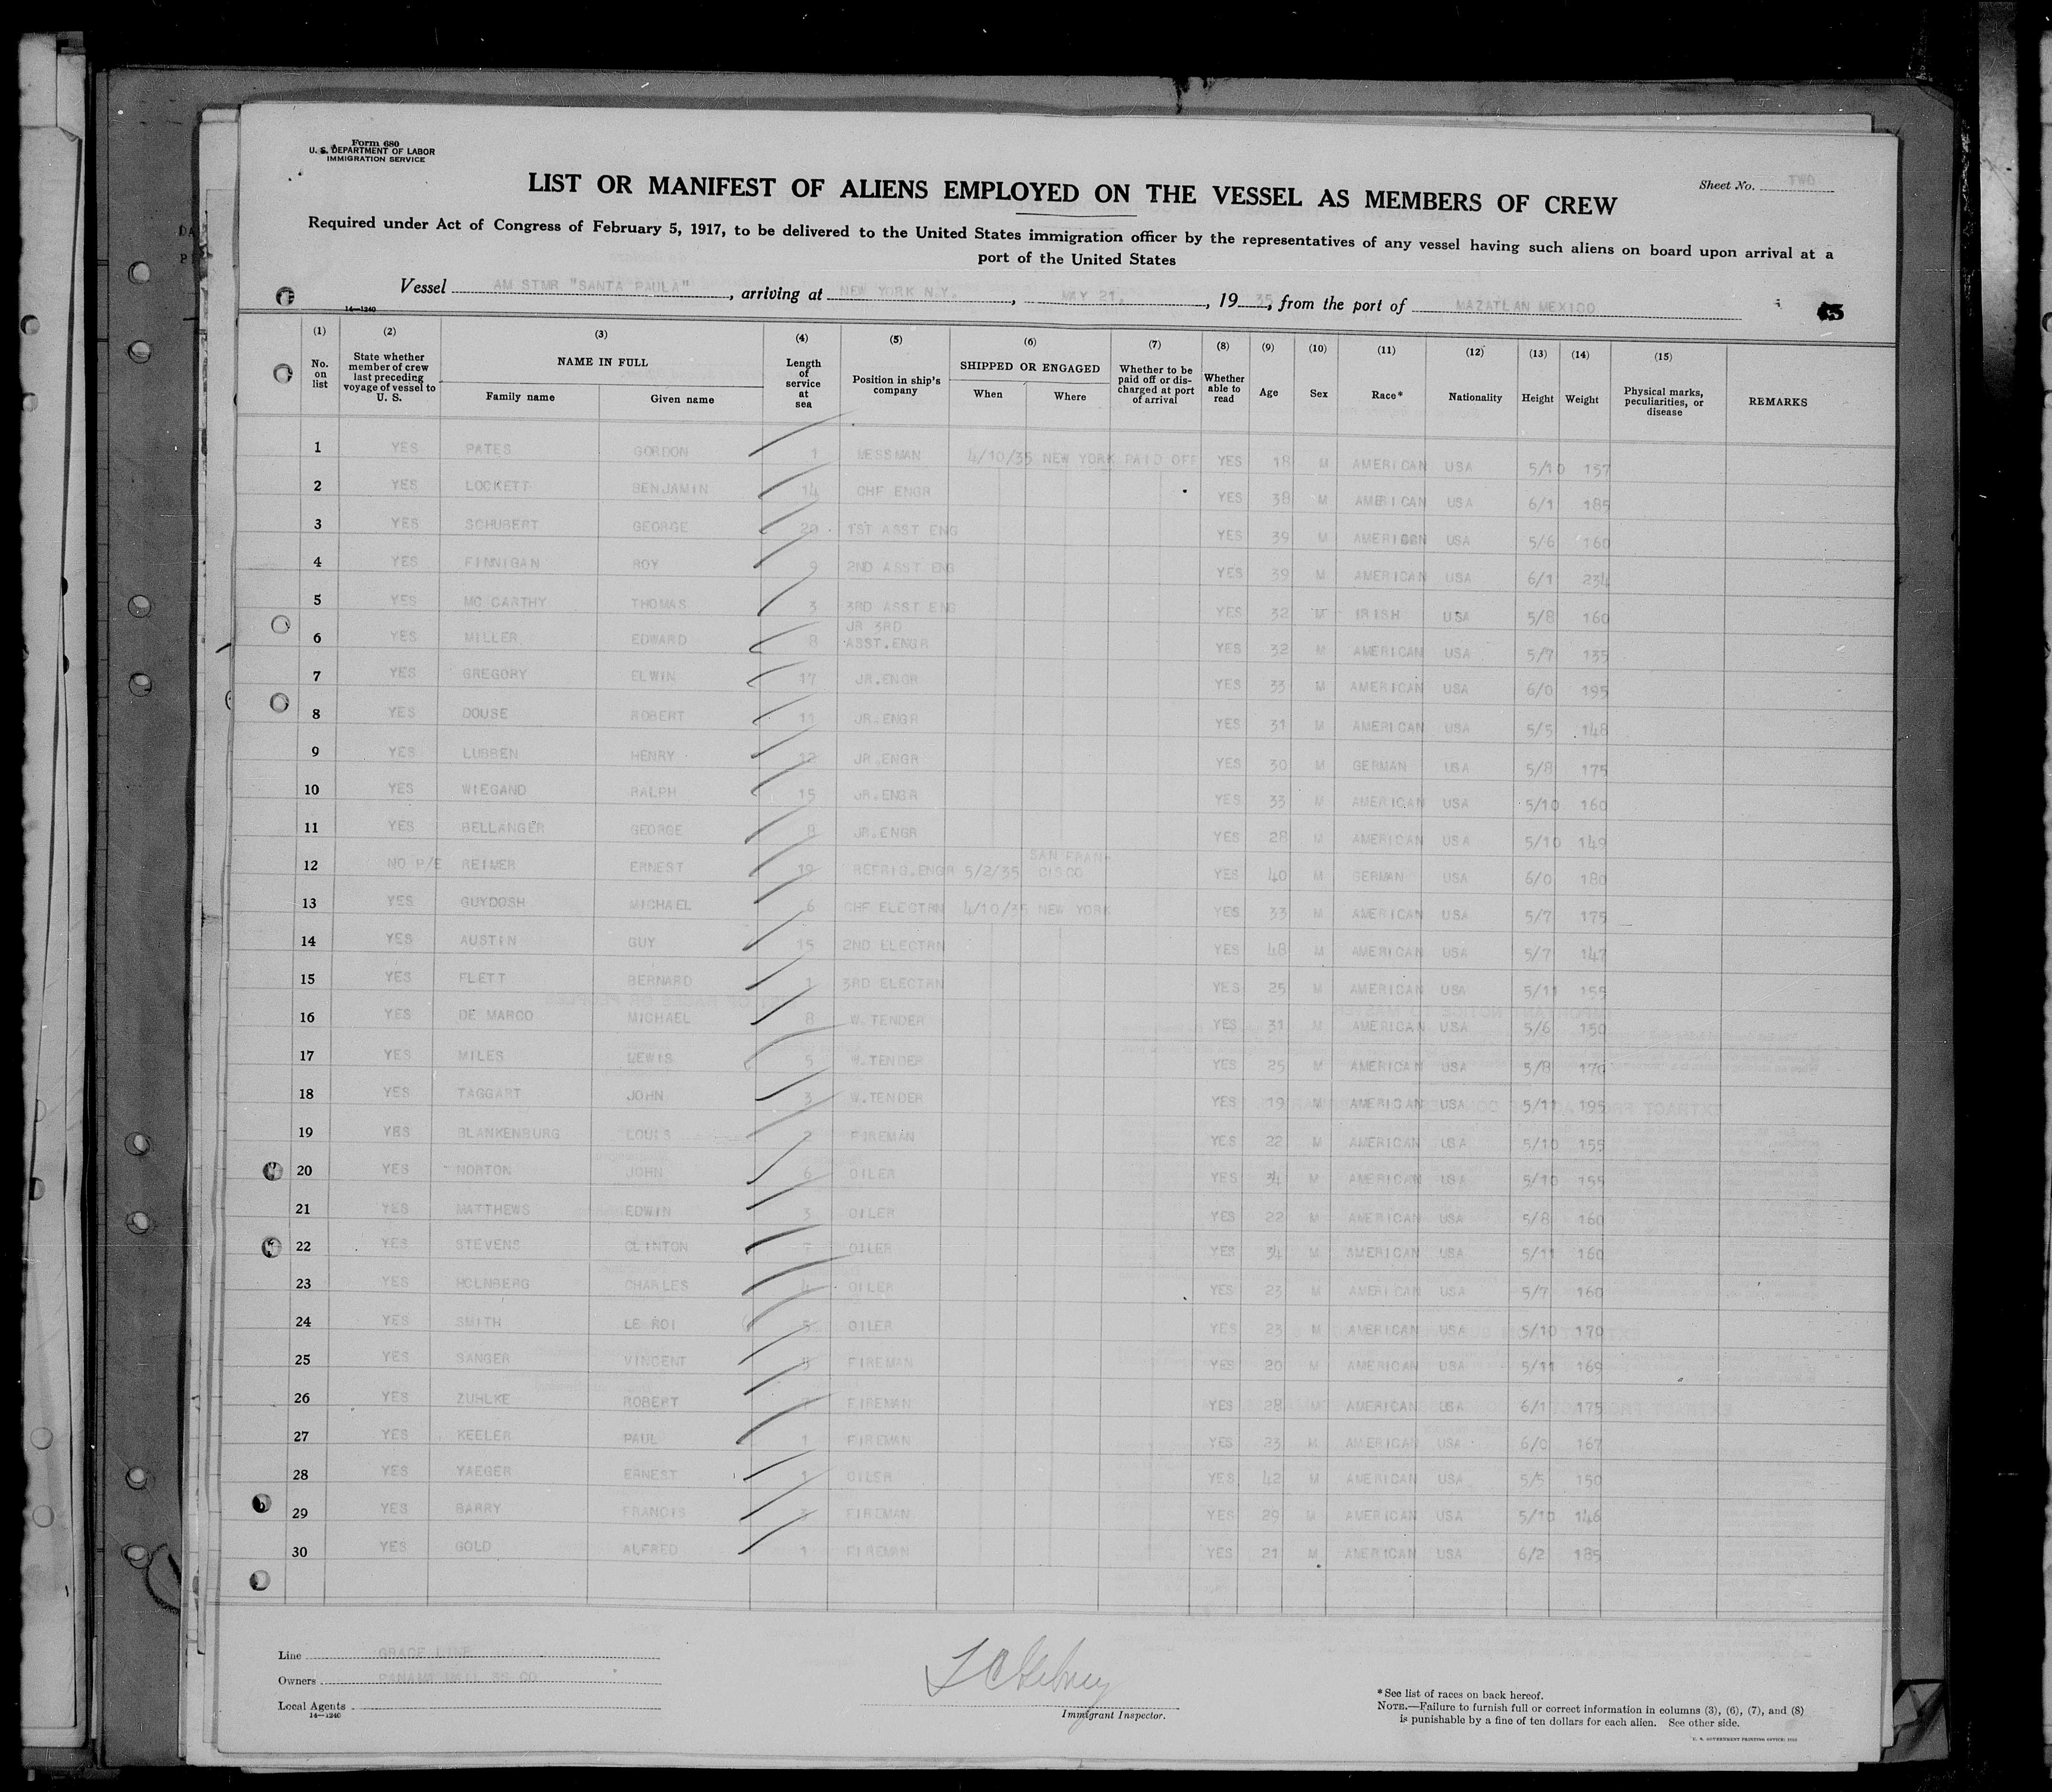 Form 680
U. S. DEPARTMENT OF LABOR
IMMIGRATION SERVICE
Sheet No. TWO
LIST OR MANIFEST OF ALIENS EMPLOYED ON THE VESSEL AS MEMBERS OF CREW
Required under Act of Congress of February 5, 1917, to be delivered to the United States immigration officer by the representatives of any vessel having such aliens on board upon arrival at a
port of the United States
Vessel AM STMR "SANTA PAULA", arriving at NEW YORK N.Y., MAY 21, 1935, from the port of MAZATLAN MEXICO
14—1240
(1) (2) (3) (4) (5) (6) (7) (8) (9) (10) (11) (12) (13) (14) (15)
No. on list | State whether member of crew last preceding voyage of vessel to U. S. | NAME IN FULL | Family name | Given name | Length of service at sea | Position in ship's company | SHIPPED OR ENGAGED | When | Where | Whether to be paid off or discharged at port of arrival | Whether able to read | Age | Sex | Race* | Nationality | Height | Weight | Physical marks, peculiarities, or disease | REMARKS
1 YES PATES GORDON 1 MESSMAN 4/10/35 NEW YORK PAID OFF YES 18 M AMERICAN USA 5/10 157
2 YES LOCKETT BENJAMIN 14 CHF ENGR YES 38 M AMERICAN USA 6/1 185
3 YES SCHUBERT GEORGE 20 1ST ASST ENG YES 39 M AMERICAN USA 5/6 160
4 YES FINNIGAN ROY 9 2ND ASST ENG YES 39 M AMERICAN USA 6/1 234
5 YES MC CARTHY THOMAS 3 3RD ASST ENG YES 32 M IRISH USA 5/8 160
6 YES MILLER EDWARD 8 JR 3RD ASST.ENGR YES 32 M AMERICAN USA 5/7 135
7 YES GREGORY ELWIN 17 JR.ENGR YES 33 M AMERICAN USA 6/0 195
8 YES DOUSE ROBERT 11 JR.ENGR YES 31 M AMERICAN USA 5/5 148
9 YES LUBBEN HENRY 12 JR.ENGR YES 30 M GERMAN USA 5/8 175
10 YES WIEGAND RALPH 15 JR.ENGR YES 33 M AMERICAN USA 5/10 160
11 YES BELLANGER GEORGE 8 JR.ENGR YES 28 M AMERICAN USA 5/10 149
12 NO P/E REIMER ERNEST 19 REFRIG.ENGR 5/2/35 SAN FRANCISCO YES 40 M GERMAN USA 6/0 180
13 YES GUYDOSH MICHAEL 6 CHF ELECTRN 4/10/35 NEW YORK YES 33 M AMERICAN USA 5/7 175
14 YES AUSTIN GUY 15 2ND ELECTRN YES 48 M AMERICAN USA 5/7 147
15 YES FLETT BERNARD 1 3RD ELECTRN YES 25 M AMERICAN USA 5/11 155
16 YES DE MARCO MICHAEL 8 W.TENDER YES 31 M AMERICAN USA 5/6 150
17 YES MILES LEWIS 5 W.TENDER YES 25 M AMERICAN USA 5/8 170
18 YES TAGGART JOHN 3 W.TENDER YES 19 M AMERICAN USA 5/11 195
19 YES BLANKENBURG LOUIS FIREMAN YES 22 M AMERICAN USA 5/10 155
20 YES NORTON JOHN 6 OILER YES 34 M AMERICAN USA 5/10 155
21 YES MATTHEWS EDWIN 3 OILER YES 22 M AMERICAN USA 5/8 160
22 YES STEVENS CLINTON 7 OILER YES 34 M AMERICAN USA 5/11 160
23 YES HOLNBERG CHARLES 4 OILER YES 23 M AMERICAN USA 5/7 160
24 YES SMITH LE ROI 5 OILER YES 23 M AMERICAN USA 5/10 170
25 YES SANGER VINCENT FIREMAN YES 20 M AMERICAN USA 5/11 169
26 YES ZUHLKE ROBERT FIREMAN YES 28 M AMERICAN USA 6/1 175
27 YES KEELER PAUL 1 FIREMAN YES 23 M AMERICAN USA 6/0 167
28 YES YAEGER ERNEST 1 OILER YES 42 M AMERICAN USA 5/5 150
29 YES BARRY FRANCIS 3 FIREMAN YES 29 M AMERICAN USA 5/10 146
30 YES GOLD ALFRED 1 FIREMAN YES 21 M AMERICAN USA 6/2 185
Line GRACE LINE
Owners PANAMA MAIL SS CO
Local Agents
14—1240
Immigrant Inspector.
*See list of races on back hereof.
NOTE.—Failure to furnish full or correct information in columns (3), (6), (7), and (8)
is punishable by a fine of ten dollars for each alien. See other side.
U. S. GOVERNMENT PRINTING OFFICE